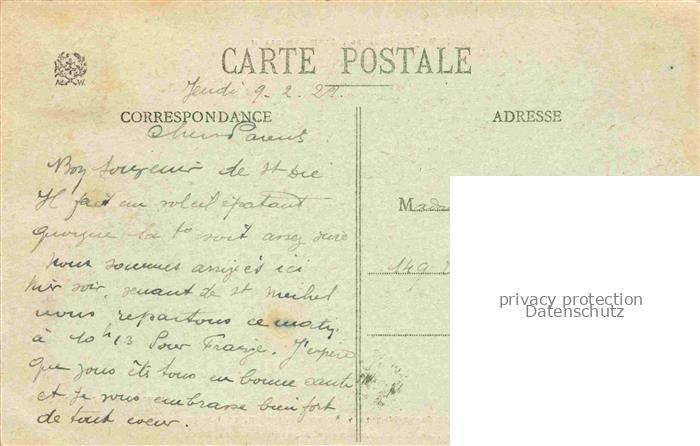 CARTE POSTALE
Jeudi 9.2.22.
CORRESPONDANCE
ADRESSE
Chers Parents
Bon souvenir de St Dié
Il fait un soleil épatant
quoique la t° soit assez
nous sommes arrivés ici
hier soir, venant de St Mihiel
nous repartons ce matin
à 10h13 Pour Fraize. J'espère
que vous êtes tous en bonne santé
et je vous embrasse bien fort
de tout coeur.
149
privacy protection
Datenschutz